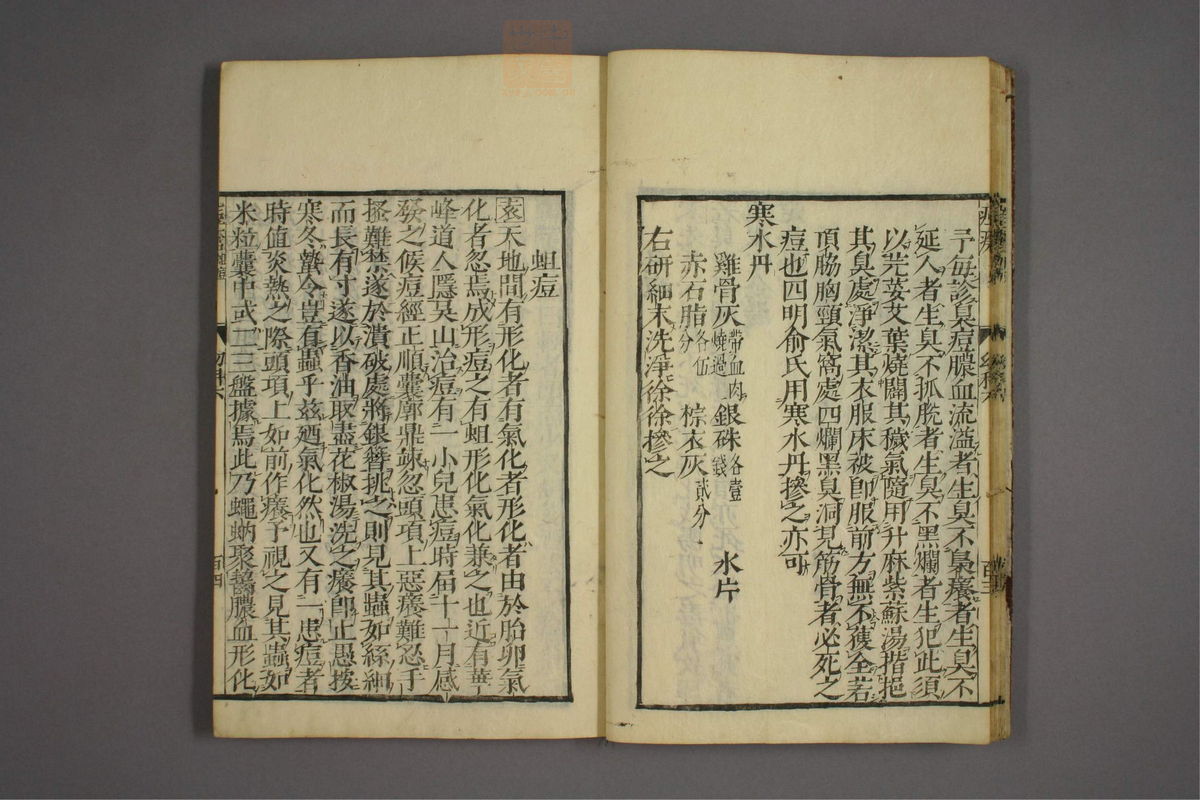 予每診臭痘膿血流溢者生臭不臭癢者生臭不
延人者生臭不孤脫者生臭不黑爛者生犯此須
以芫荽艾葉燒闢其穢氣隨用升麻紫蘇湯揩挹
其臭處淨潔其衣服床被卽服前方無不獲全若
頂脇胸頸氣窩處四爛黑臭洞見筋骨者必死之
痘也四明俞氏用寒水丹摻之亦可
寒水丹
雞骨灰帶血肉燒過 銀硃各壹錢 水片
赤石脂各伍分 棕衣灰貳分
右研細末洗淨徐徐摻之
百三
蛆痘
袁天地間有形化者有氣化者形化者由於胎卵氣
化者忽焉成形痘之有蛆形化氣化兼之也近有華
峰道人隱吳山治痘有一小兒患痘時屆十一月感
發之候痘經正順囊廓鼎竦忽頭項上惡癢難忍手
搔難禁遂於潰破處將銀簪挑之則見其蟲如絲細
而長有寸遂以香油取盡花椒湯洗之癢卽止愚按
寒冬蟄令豈有蟲乎玆廼氣化然也又有一患痘者
時值炎熱之際頭項上如前作癢予視之見其蟲如
米粒囊中或二三盤據焉此乃蠅蚋聚䭇膿血形化
百四